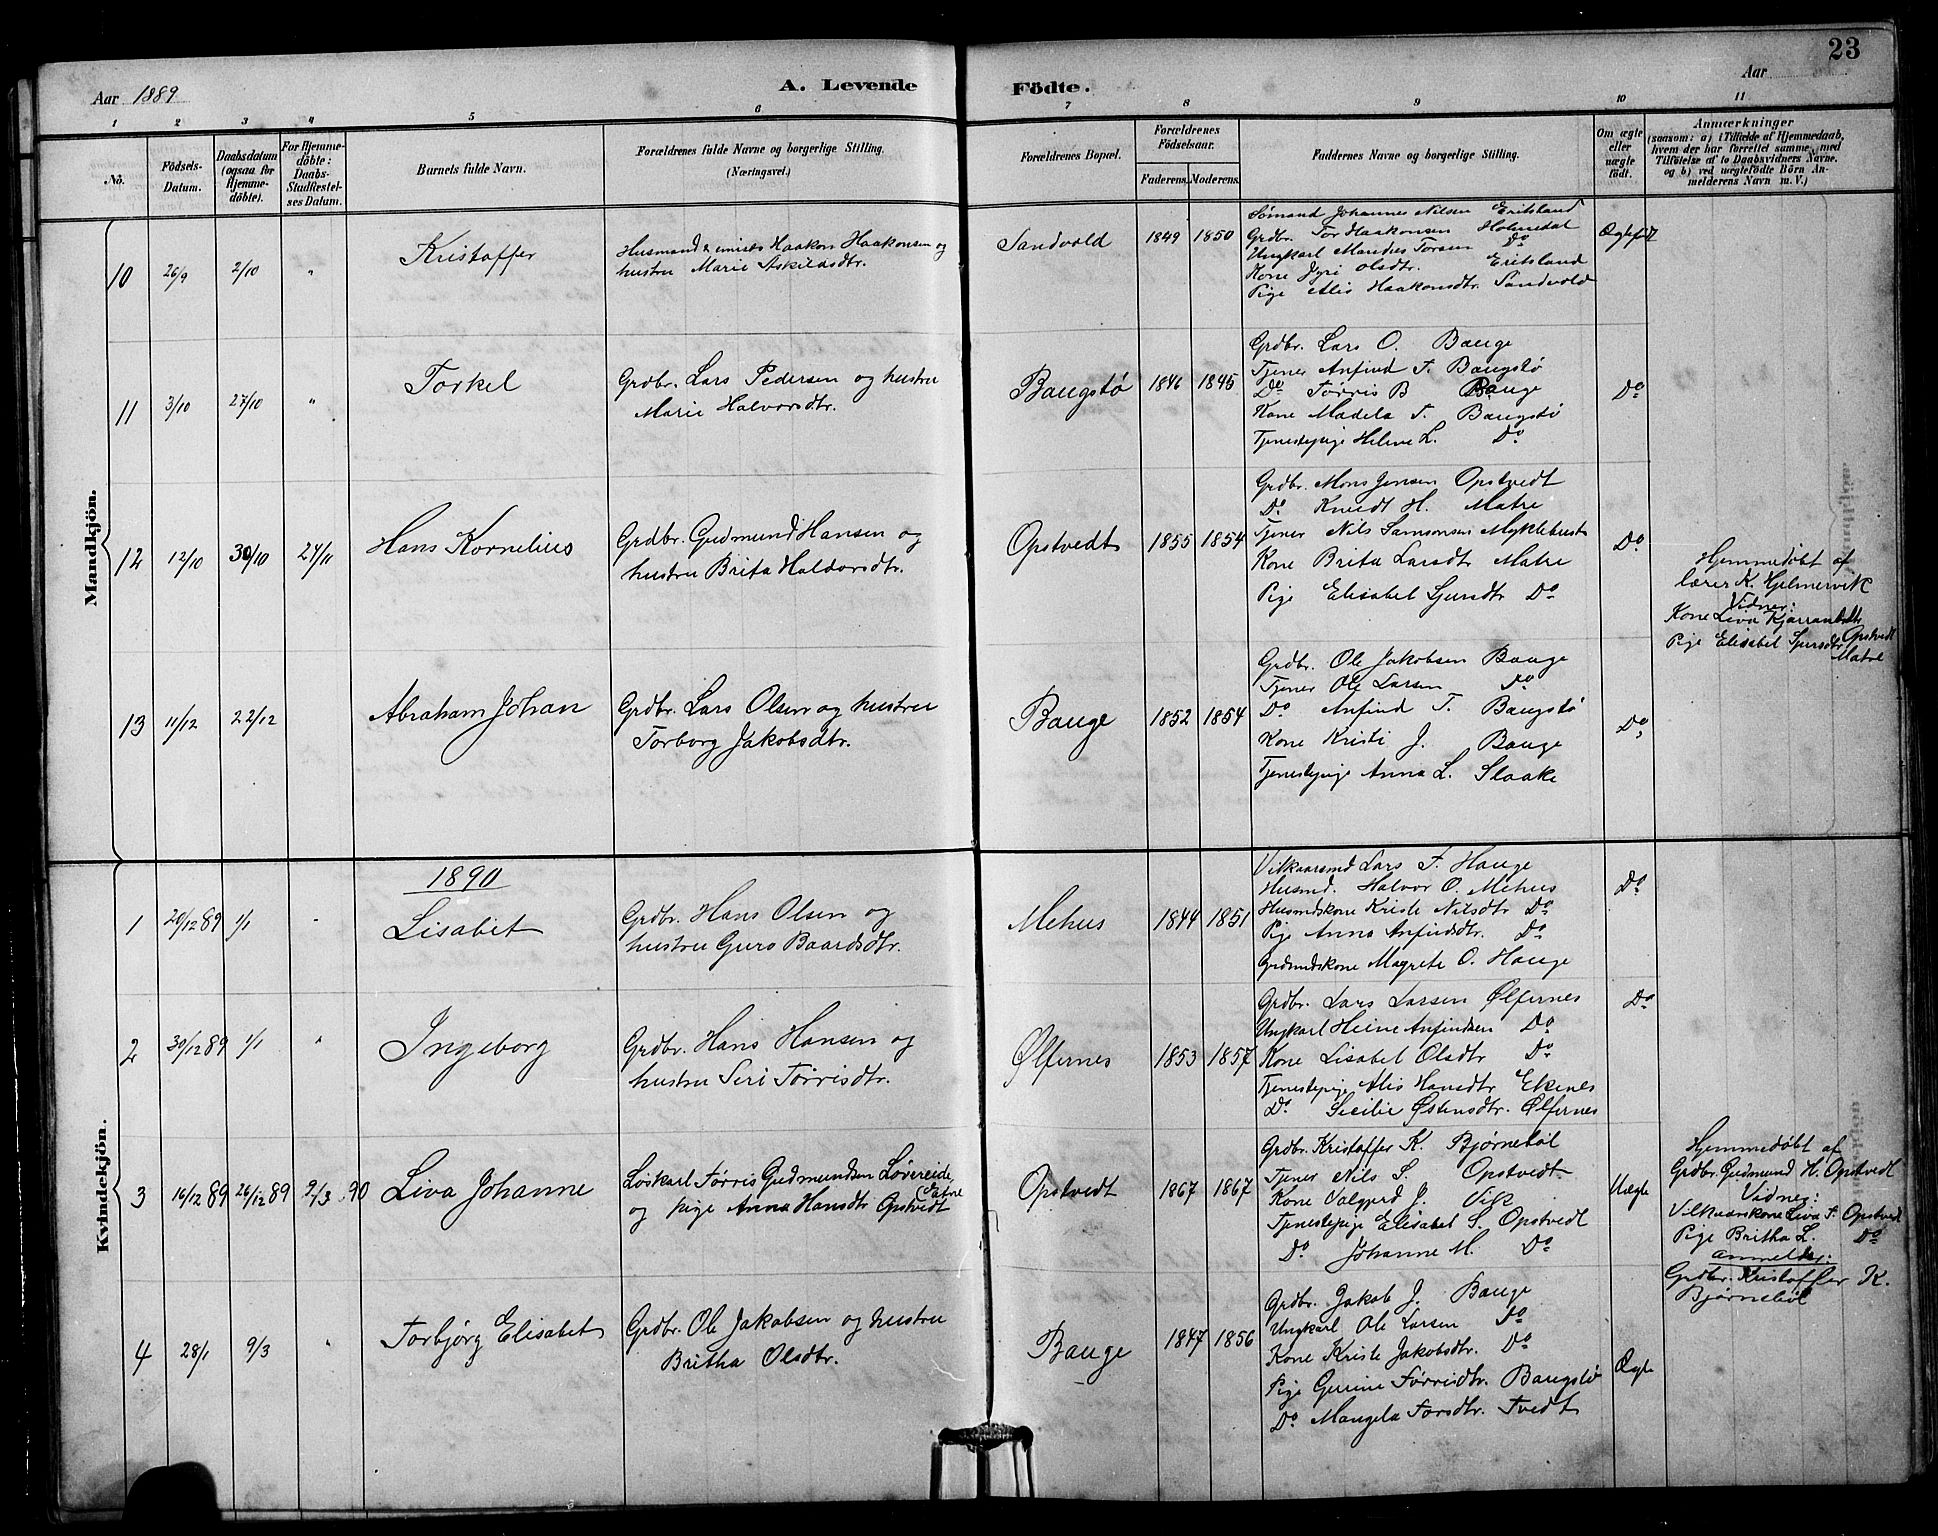 23
Aar 1889
A. Levende Födte.
Aar
1 2 3 4 5 6 7 8 9 10 11
No.
Födsels-Datum.
Daabsdatum (ogsaa for Hjemmedöbte).
For Hjemmedöbte: Daabs-Stadfæstelses Datum.
Barnets fulde Navn.
Forældrenes fulde Navne og borgerlige Stilling. (Næringsvei.)
Forældrenes Bopæl.
Forældrenes Födselsaar.
Faderens. Moderens.
Faddernes Navne og borgerlige Stilling.
Om ægte eller uægte födt.
Anmærkninger
(saasom: a) i Tilfælde af Hjemmedaab, hvem der har forrettet samme, med Tilföielse af to Daabsvidners Navne, og b) ved uægtefödte Börn Anmelderens Navn m. V.)
Mandkjön.
10 26/9 2/10 " Kristoffer
Husmand & Haakon Haakonsen og
hustru Marie Askildsdtr.
Sandvold 1849 1850
Sømand Johannes Nilsen Eritsland
Grdbr. Tor Haakonsen Holmedal
Ungkarl Mandius Torsen Do
Kone Jyri Olsdtr. Eritsland
Pige Alis Haakonsdtr. Sandvold
Ægtefødt
11 3/10 27/10 " Torkel
Grdbr. Lars Pedersen og hustru
Marie Halvorsdtr.
Baugstø 1846 1845
Grdbr. Lars O. Bauge
Tjener Anfind T. Baugstø
Do Tørris B Bauge
Kone Madela T. Baugstø
Tjenestepige Helene L. Do
Do
12 12/10 30/10 24/11 Hans Kornelius
Grdbr. Gudmund Hansen og
hustru Brita Haldorsdtr.
Opstvedt 1855 1854
Grdbr. Mons Jensen Opstvedt
Do Knudt H. Matre
Tjener Nils Samsonsen Myklebust
Kone Brita Larsdtr Matre
Pige Elisabet Sjursdtr Do
Do
Hjemmedøbt af
lærer K. Hjelmervik
Vidner:
Kone Liva
Opstvedt
Pige Elisabet Sjursdtr
Matre
13 11/12 22/12 Abraham Johan
Grdbr. Lars Olsen og hustru
Torborg Jakobsdtr.
Bauge 1852 1854
Grdbr. Ole Jakobsen Bauge
Tjener Ole Larsen Do
Do Anfind T. Baugstø
Kone Kristi J. Bauge
Tjenestepige Anna L. Slaake
Do
Kvindekjön.
1890
1 20/12 89 1/1 " Lisabet
Grdbr. Hans Olsen og
hustru Guro Baardsdtr.
Mehus 1844 1851
Vilkaarsmd Lars T. Hauge
Husmd. Halvor O. Mehus
Husmdskone Kristi Nilsdtr Do
Pige Anna Anfindsdtr. Do
Grdmdskone Magrete O. Hauge
Do
2 30/12 89 1/1 " Ingeborg
Grdbr. Hans Hansen og
hustru Seri Tørrisdtr.
Ølfernes 1853 1857
Grdbr. Lars Larsen Ølfernes
Ungkarl Heine Anfindsen Do
Kone Lisabet Olsdtr Do
Tjenestepige Alis Hansdtr Ekenes
Do Secilie Østensdtr. Ølfernes
Do
3 16/12 89 26/12 89 2/3 90 Liva Johanne
Løskarl Tørris Gudmundsen Løvereide
og pige Anna Hansdtr Opstvedt
Opstvedt 1867 1867
Grdbr. Kristoffer K. Bjørnebøl
Tjener Nils S. Opstvedt
Kone Valgjerd J. Vik
Tjenestepige Elisabet S. Opstvedt
Do Johanne M. Do
Uægte
Hjemmedøbt af
Grdbr. Gudmund H. Opstvedt
Vidner:
Vilkaarskone Liva T. Opstvedt
Pige Britha L. Do
Grdbr. Kristoffer K.
Bjørnebøl
4 28/1 9/3 " Torbjørg Elisabet
Grdbr. Ole Jakobsen og hustru
Britha Olsdtr.
Bauge 1847 1856
Grdbr. Jakob J. Bauge
Ungkarl Ole Larsen Do
Kone Kristi Jakobsdtr. Do
Pige Gurine Tørrisdtr. Baugstø
Do Mangela Torsdtr. Tvedt
Ægte